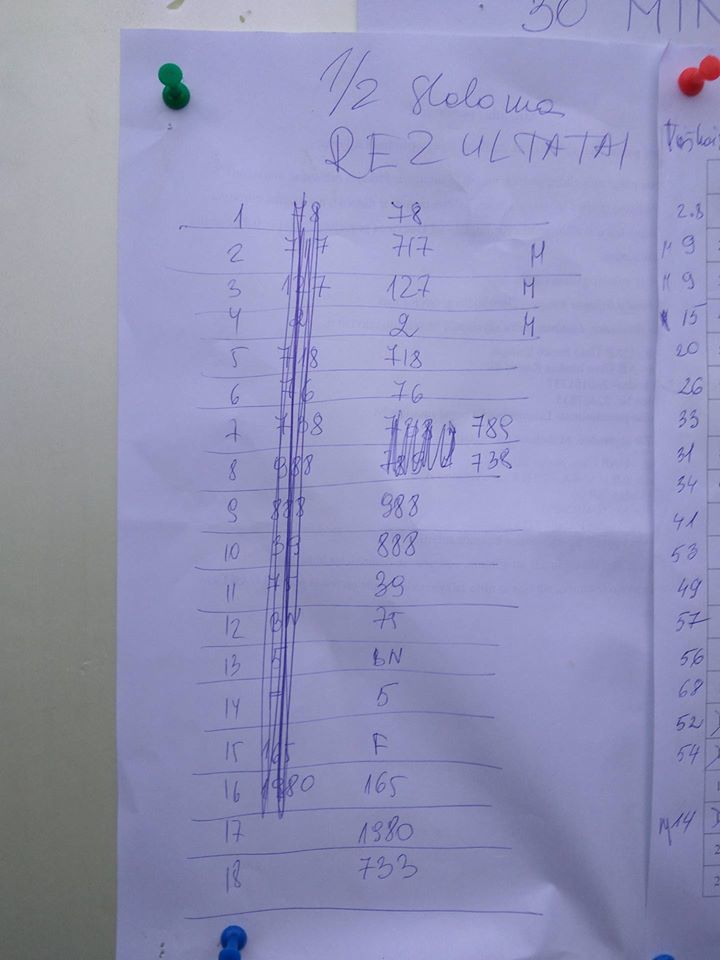 30 MIN
1/2 sloloma
REZULTATAI
1 78 78
2 717 717 M
3 127 127 M
4 2 2 M
5 718 718
6 76 76
7 738 789
8 988 738
9 888 988
10 39 888
11 75 39
12 BN 75
13 5 BN
14 F 5
15 165 F
16 1980 165
17 1980
18 733
2.8
M 9
M 9
15
20
26
33
31
34
41
53
49
57
56
68
52
54
M14